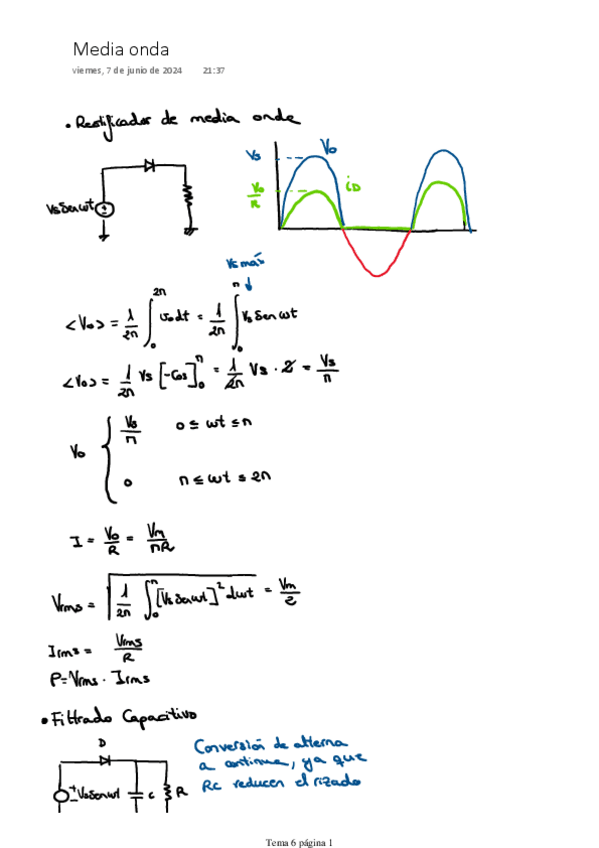 Media onda
viernes, 7 de junio de 2024 21:37
• Rectificador de media onda
Vs Senωt
Vs
Vo
Vo/R
iD
Vs máx
<Vo> = 1/2π ∫₀^2π vo dt = 1/2π ∫₀^π Vs Senωt
<Vo> = 1/2π Vs [-Cos]₀^π = 1/2π Vs · 2 = Vs/π
Vo { Vs/π 0 ≤ ωt ≤ π
0 π ≤ ωt ≤ 2π
I = Vo/R = Vm/πR
Vrms = √(1/2π ∫₀^π [Vs Senωt]² dωt) = Vm/2
Irms = Vrms/R
P = Vrms · Irms
• Filtrado Capacitivo
D
Vo Senωt
C
R
Conversión de alterna
a continua, ya que
Rc reducen el rizado
Tema 6 página 1